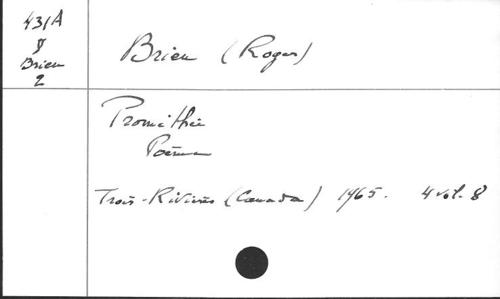 431A
8
Brien
2
Brien (Roger)
Prométhée
Poème
Trois-Rivières (Canada) 1965. 4 vol. 8